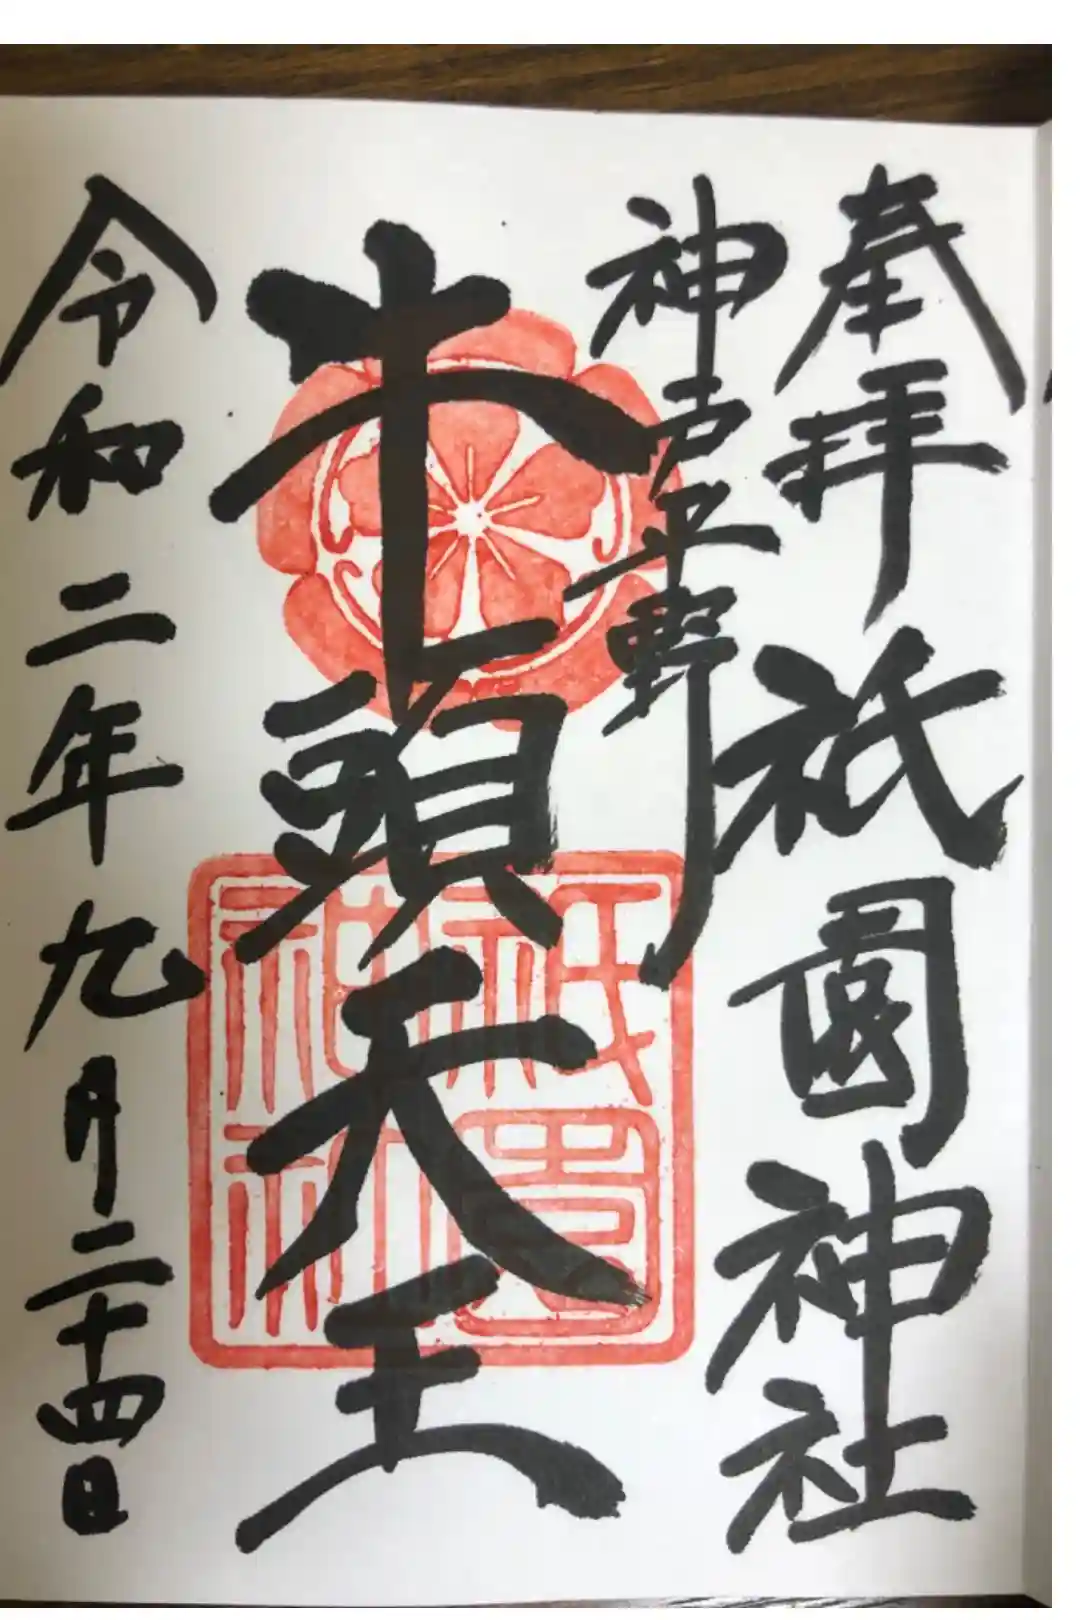 奉拝
祇園神社
神戸平野
牛頭天王
祇園神社
令和二年九月二十四日